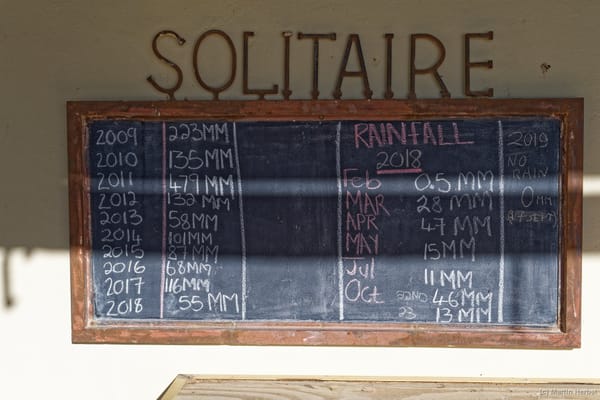 SOLITAIRE
2009 223MM
2010 135MM
2011 479MM
2012 132MM
2013 58MM
2014 101MM
2015 87MM
2016 68MM
2017 116MM
2018 55MM
RAINFALL
2018
Feb 0.5 MM
MAR 28 MM
APR 47 MM
MAY 15MM
Jul 11MM
Oct 22ND 46MM
23 13MM
2019
NO
RAIN
0MM
(c) Martin Herbst